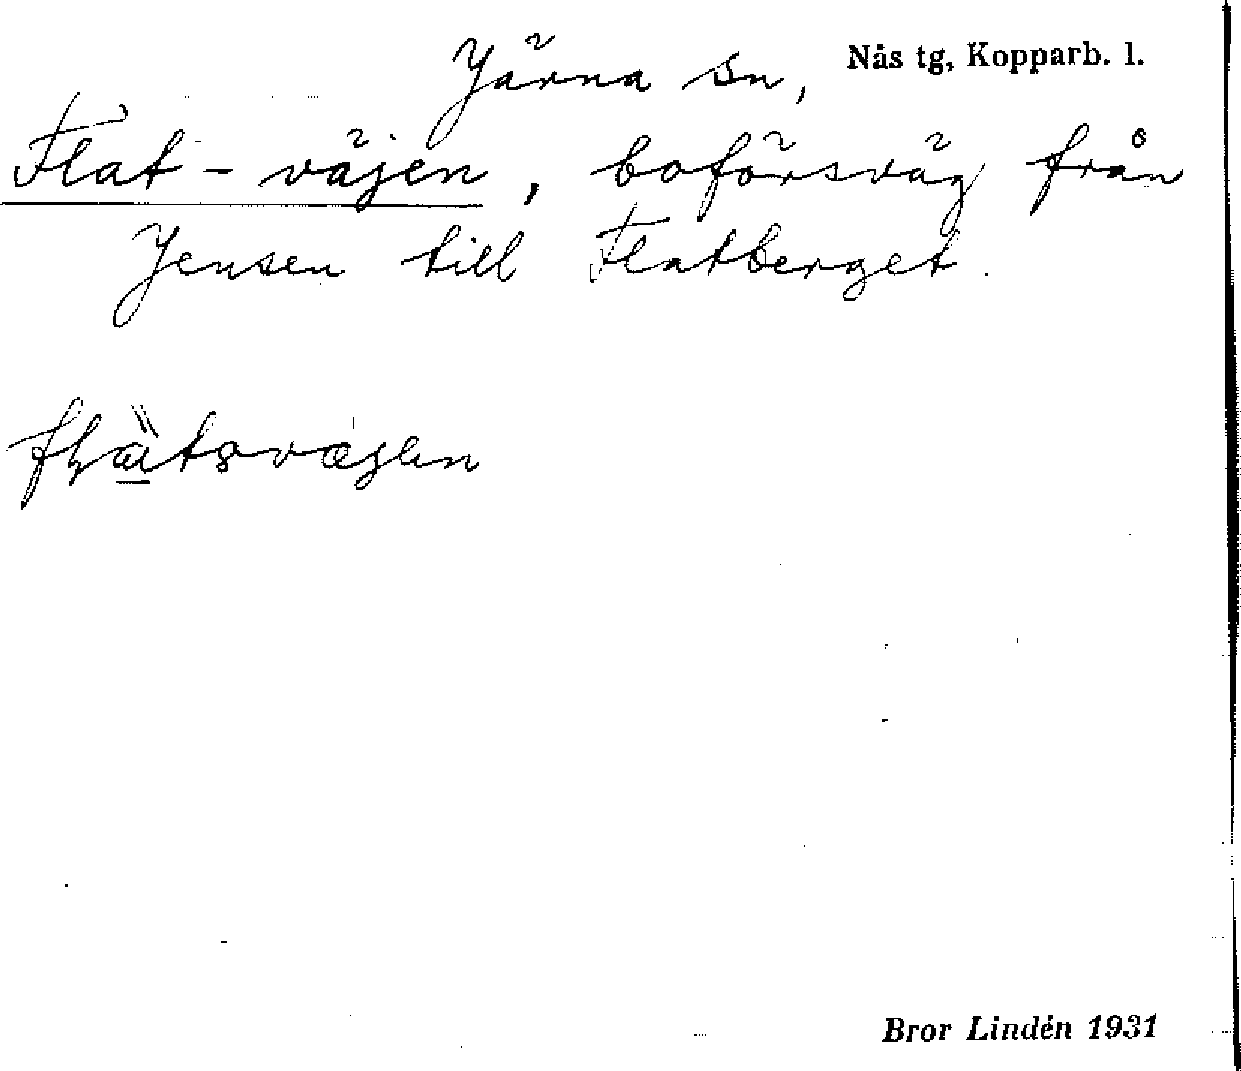 Järna sn, Nås tg, Kopparb. l.
Flat-väjen, boförsväg från
Jensen till Flatberget.
Bror Lindén 1931